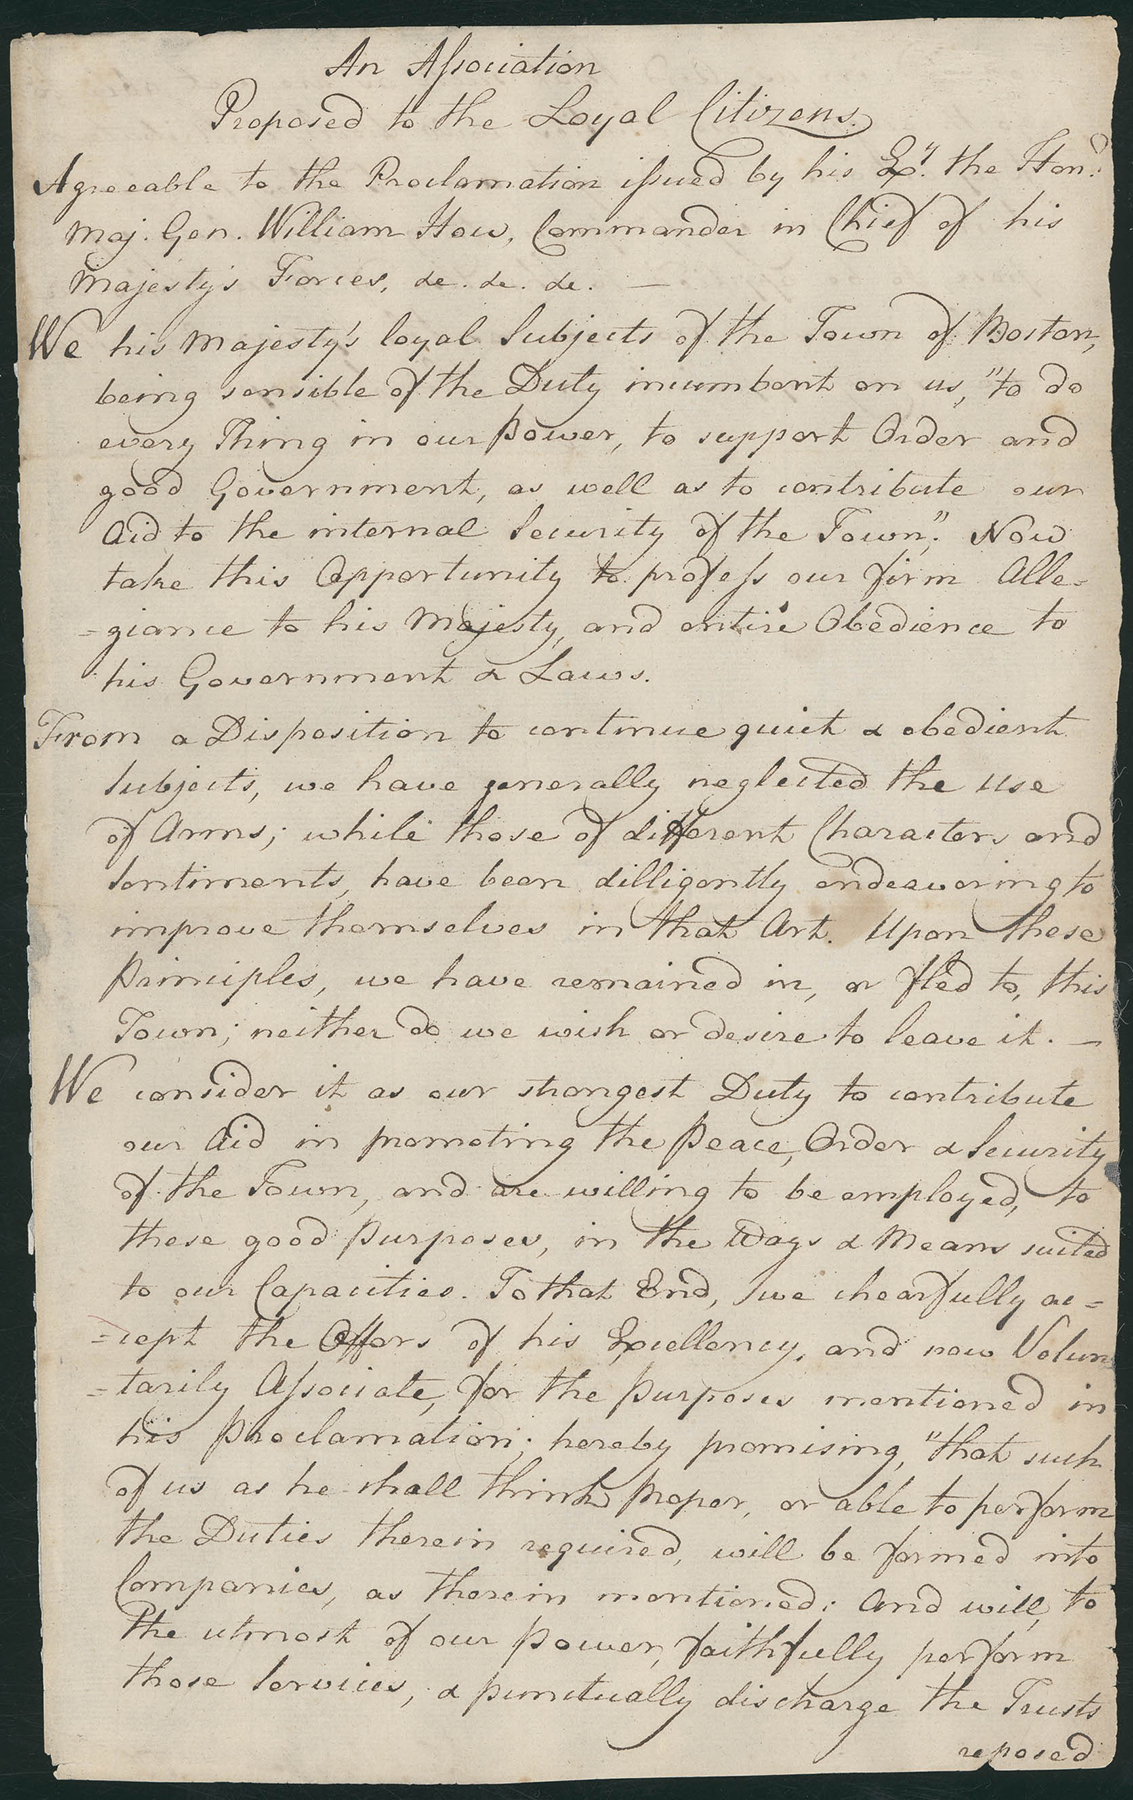 An Association
Proposed to the Loyal Citizens.
Agreeable to the Proclamation issued by his Exy. the Hond.
Maj. Gen. William How, Commander in Chief of his
Majesty's Forces, &c. &c. &c. —
We his Majesty's loyal Subjects of the Town of Boston,
being sensible of the Duty incumbent on us, "to do
every Thing in our Power, to support Order and
good Government, as well as to contribute our
Aid to the internal Security of the Town", Now
take this Opportunity to profess our firm Alle=
=giance to his Majesty, and entire Obedience to
his Government & Laws.
From a Disposition to continue quiet & obedient
Subjects, we have generally neglected the use
of Arms; while those of different Characters and
Sentiments, have been dilligently endeavoring to
improve themselves in that Art. Upon these
Principles, we have remained in, or fled to, this
Town; neither do we wish or desire to leave it. —
We consider it as our strongest Duty to contribute
our Aid in promoting the Peace, Order & Security
of the Town, and are willing to be employed, to
these good Purposes, in the Ways & Means suited
to our Capacities. To that End, we chearfully ac=
=cept the Offers of his Excellency, and now Volun
=tarily Associate, for the purposes mentioned in
his Proclamation; hereby promising, "that such
of us as he shall think proper, or able to perform
the Duties therein required, will be formed into
Companies, as therein mentioned: And will, to
the utmost of our power, faithfully perform
those Services, & punctually discharge the Trusts
reposed